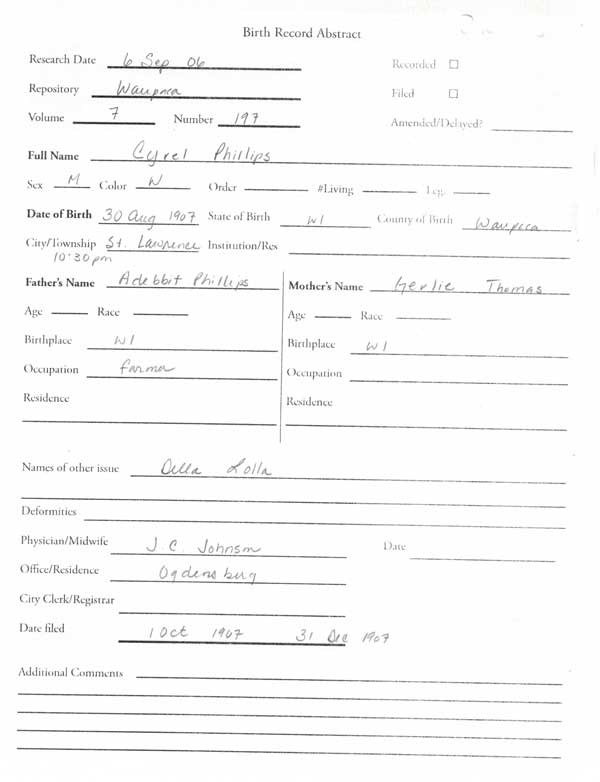 Birth Record Abstract
Research Date 6 Sep 06 Recorded
Repository Waupaca Filed
Volume 7 Number 197 Amended/Delayed?
Full Name Cyrel Phillips
Sex M Color W Order #Living Leg.
Date of Birth 30 Aug 1907 State of Birth WI County of Birth Waupaca
City/Township St. Lawrence Institution/Res
10:30 pm
Father's Name Adebbit Phillips Mother's Name Gerlie Thomas
Age Race Age Race
Birthplace WI Birthplace WI
Occupation farmer Occupation
Residence Residence
Names of other issue Della Lolla
Deformities
Physician/Midwife J C. Johnson Date
Office/Residence Ogdensburg
City Clerk/Registrar
Date filed 1 Oct 1907 31 Dec 1907
Additional Comments